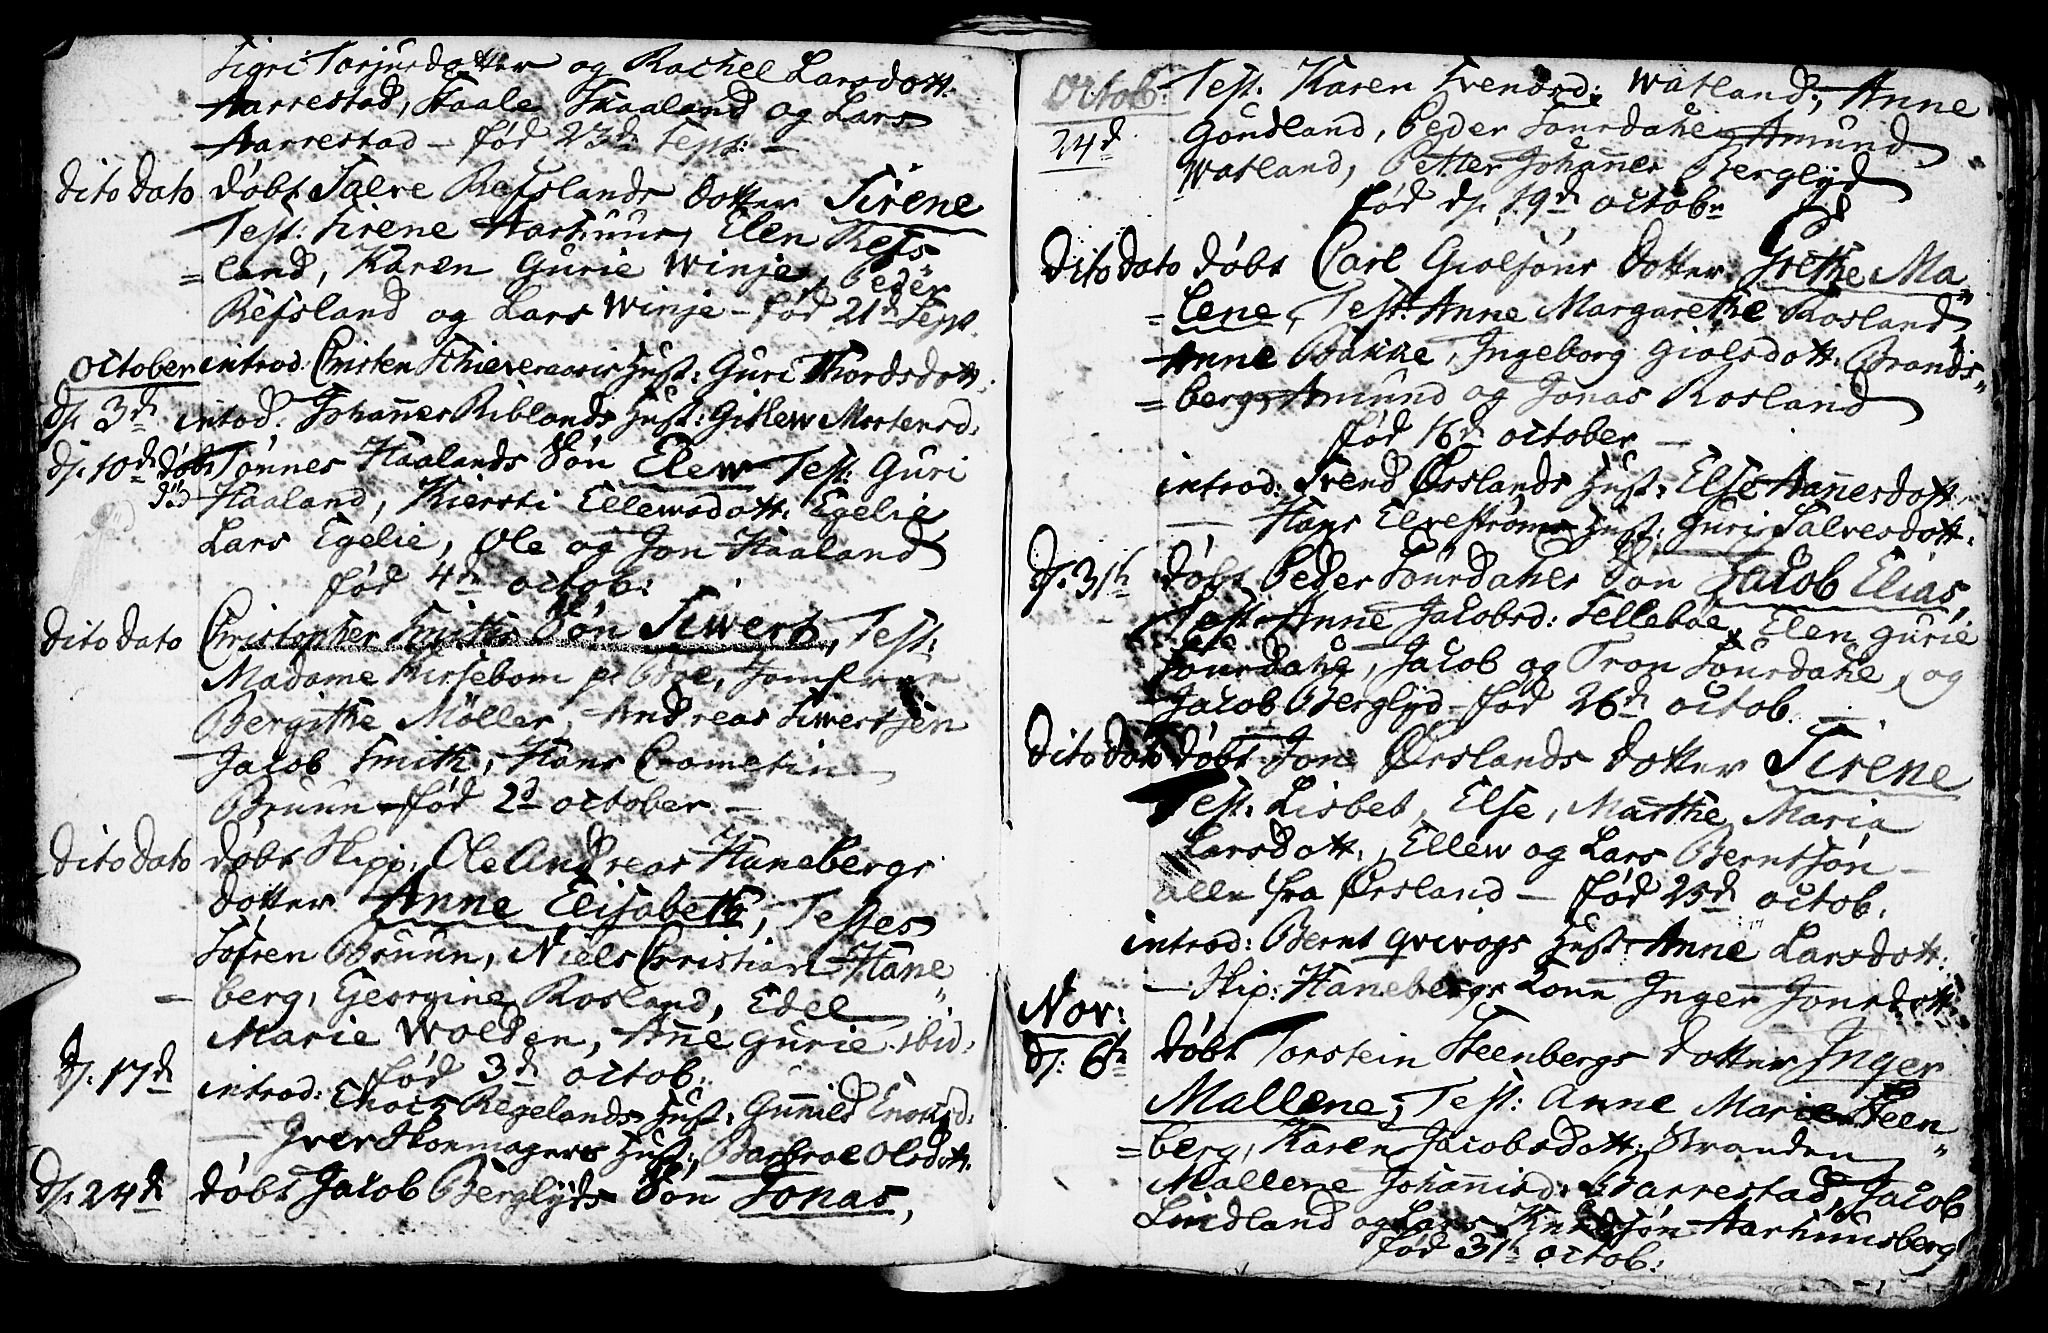 Sigri Tarjusdotter og Rachel Larsdott:
Aarrestad, Staale Skaaland og Lars
Aarrestad – fød 23de Sept: –
Dito Dato døbt Salve Refslands dotter Sirene
Test: Sirene Aarhuus, Elen Refs
=land, Karen Gurie Winje, Peder
Refsland og Lars Winje – fød 21de Sept
October introd: Christen Hust: Guri Thordsdott:
d. 3de intod: Johannes Riblands Hust: Gitlew Mortensd:
d. 10de døbt Tønnes Haalands Søn Elew Test: Guri
død Haaland, Kiersti Ellewsdott: Egelie
Lars Egelie, Ole og Jon Haaland
fød 4de octob:
Dito Dato Christopher Smiths Søn Siwert, Test:
Madame Kirsebom p: Boe, Jomfrue
Bergithe Möller, Andreas Siwertsen
Jacob Smith, Hans Crometin
Bruun – fød 2d october. –
Dito Dato døbt Skipp: Ole Andreas Hanebergs
dotter Anne Elisabeth, Testes
Søfren Bruun, Niels Christian Hane
=berg, Georgine Rosland, Edel
Marie Wolden, Anne Gurie ibid:
fød 3de octob:
d: 17de introd: Enoch Regelands Hust: Gunild Enochsd:
— Iver Skoemagers Hust: Barbroe Olsdott.
d: 24de døbt Jacob Berglyds Søn Jonas,
Octob: Test: Karen Svendsd: Watland, Anne
24d Gondland, Peder Suurdahe, Amund
Watland, Petter Johannes Berglyd
fød d: 19de octobr
Dito Dato døbt Carl Giolsøns dotter Grethe Ma
=lene, Test: Anne Margarethe Rosland
Anne Bakke, Ingeborg Giolsdott: Brands
=berg, Amund og Jonas Rosland
fød 16de october –
introd: Svend Ørslands Hust: Else Hannesdott.
— Hans Elvestrøms Hust: Guri Salvesdott:
d: 31te døbt Peder Suurdahes Søn Jacob Elias,
Test: Anne Jacobsd: Tellebøe, Elen Gurie
Suurdahe, Jacob og Tron Suurdahe, og
Jacob Berglyd – fød 26de octob.
Dito Dato døbt Jon Ørslands dotter Sirene
Test: Lisbet, Else, Marthe Maria
Larsdott:, Ellew og Lars Berntsøn –
alle fra Ørsland – fød 23de octob.
introd: Bernt Qvivogs Hust: Anne Larsdott:
— Skip: Hanebergs Kone Inger Jonsdott:
Nov:
d: 6te døbt Torstein Steenbergs dotter Inger
Mallene, Test: Anne Marie Steen
=berg, Karen Jacobsdott: Stranden
Mallene Johannisd: Aarrestad, Jacob
Lindland og Lars Knudsøn Aarhuusberg
fød 31te octob: